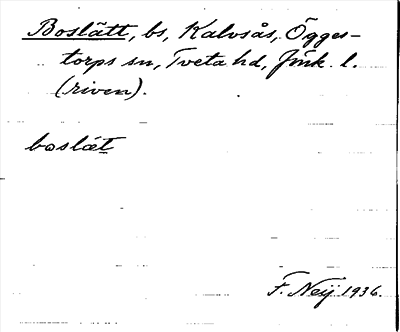 Boslätt, bs, Kalvsås, Ögges-
torps sn, Tveta hd, Jönk. l.
(riven).
boslæt
F. Neij 1936.